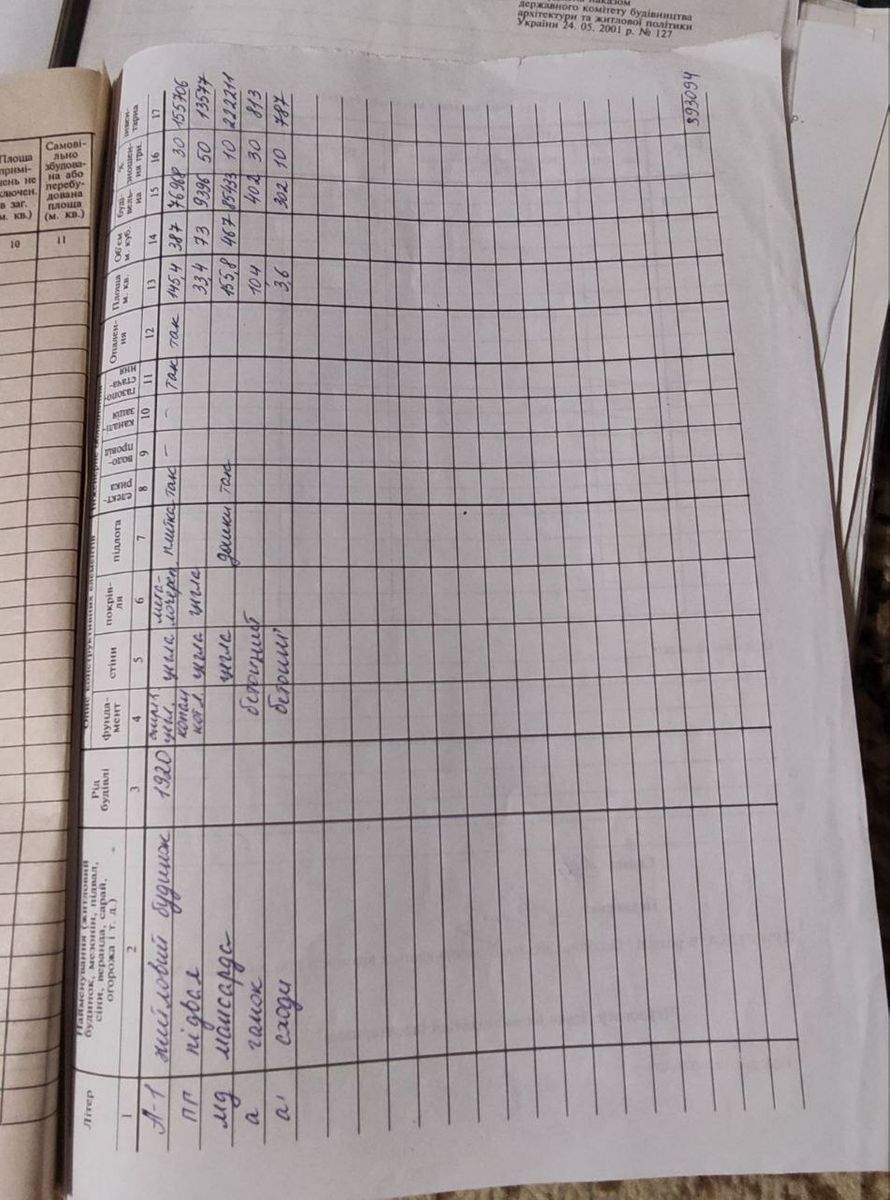 державного комітету будівництва
архітектури та житлової політики
України 24. 05. 2001 р. № 127
Площа
примі-
в заг.
м. кв.)
10
Самові-
льно
збудова-
на або
перебу-
дована
площа
(м. кв.)
11
Літер
Найменування (житловий
будинок, мезонін, підвал,
сіни, веранда, сарай,
огорожа і т. д.)
Рід
будівлі
фунда-
мент
стіни
покрів-
ля
підлога
елект-
рика
водо-
провід
каналі-
зація
газопо-
стача-
ння
Опален-
ня
Площа
м. кв.
Об'єм
м. куб.
буді-
вель-
на
%
зношен-
ня грн.
інвен-
тарна
1 2 3 4 5 6 7 8 9 10 11 12 13 14 15 16 17
А-1 житловий будинок 1920 цегл. цегла мета-
лочереп. плитка так – – так так 145,4 387 76968 30 155706
пг підвал цегла цегла 33,4 73 9396 50 13577
мд мансарда цегла дошки так 155,8 467 10 222211
а ганок бетонний 10,4 402 30 813
а' сходи бетонні 3,6 302 10 787
393094